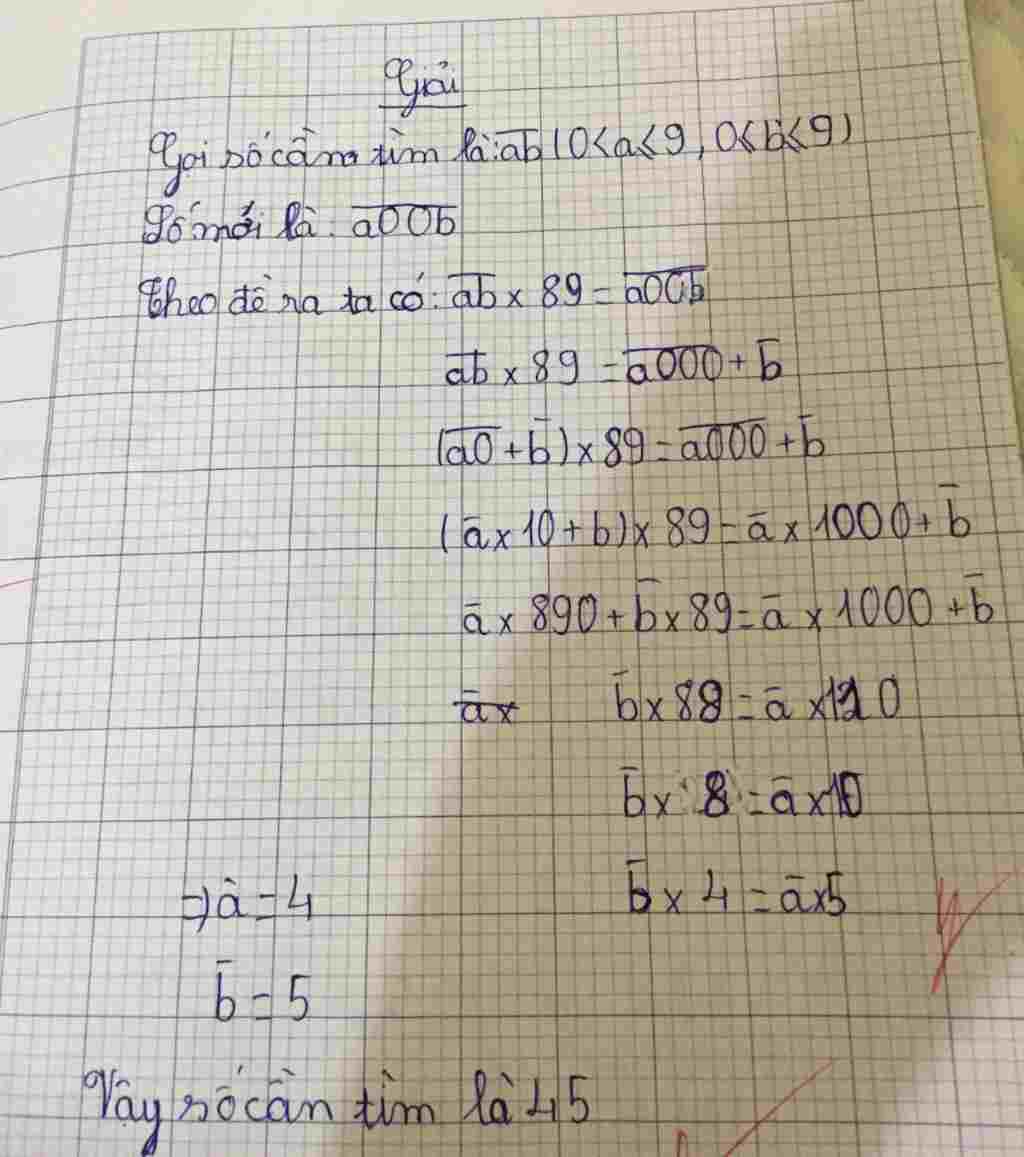 Giải
Gọi số cần tìm là: a̅b̅ (0<a≤9, 0≤b≤9)
Số mới là: a̅0̅0̅b̅
Theo đề ra ta có: a̅b̅ x 89 = a̅0̅0̅b̅
a̅b̅ x 89 = a̅0̅0̅0̅ + b̅
(a̅0̅ + b̅) x 89 = a̅0̅0̅0̅ + b̅
(a̅ x 10 + b) x 89 = a̅ x 1000 + b̅
a̅ x 890 + b̅ x 89 = a̅ x 1000 + b̅
a̅ x b̅ x 88 = a̅ x 110
b̅ x 8 = a̅ x 10
b̅ x 4 = a̅ x 5
=> a̅ = 4
b̅ = 5
Vậy số cần tìm là 45